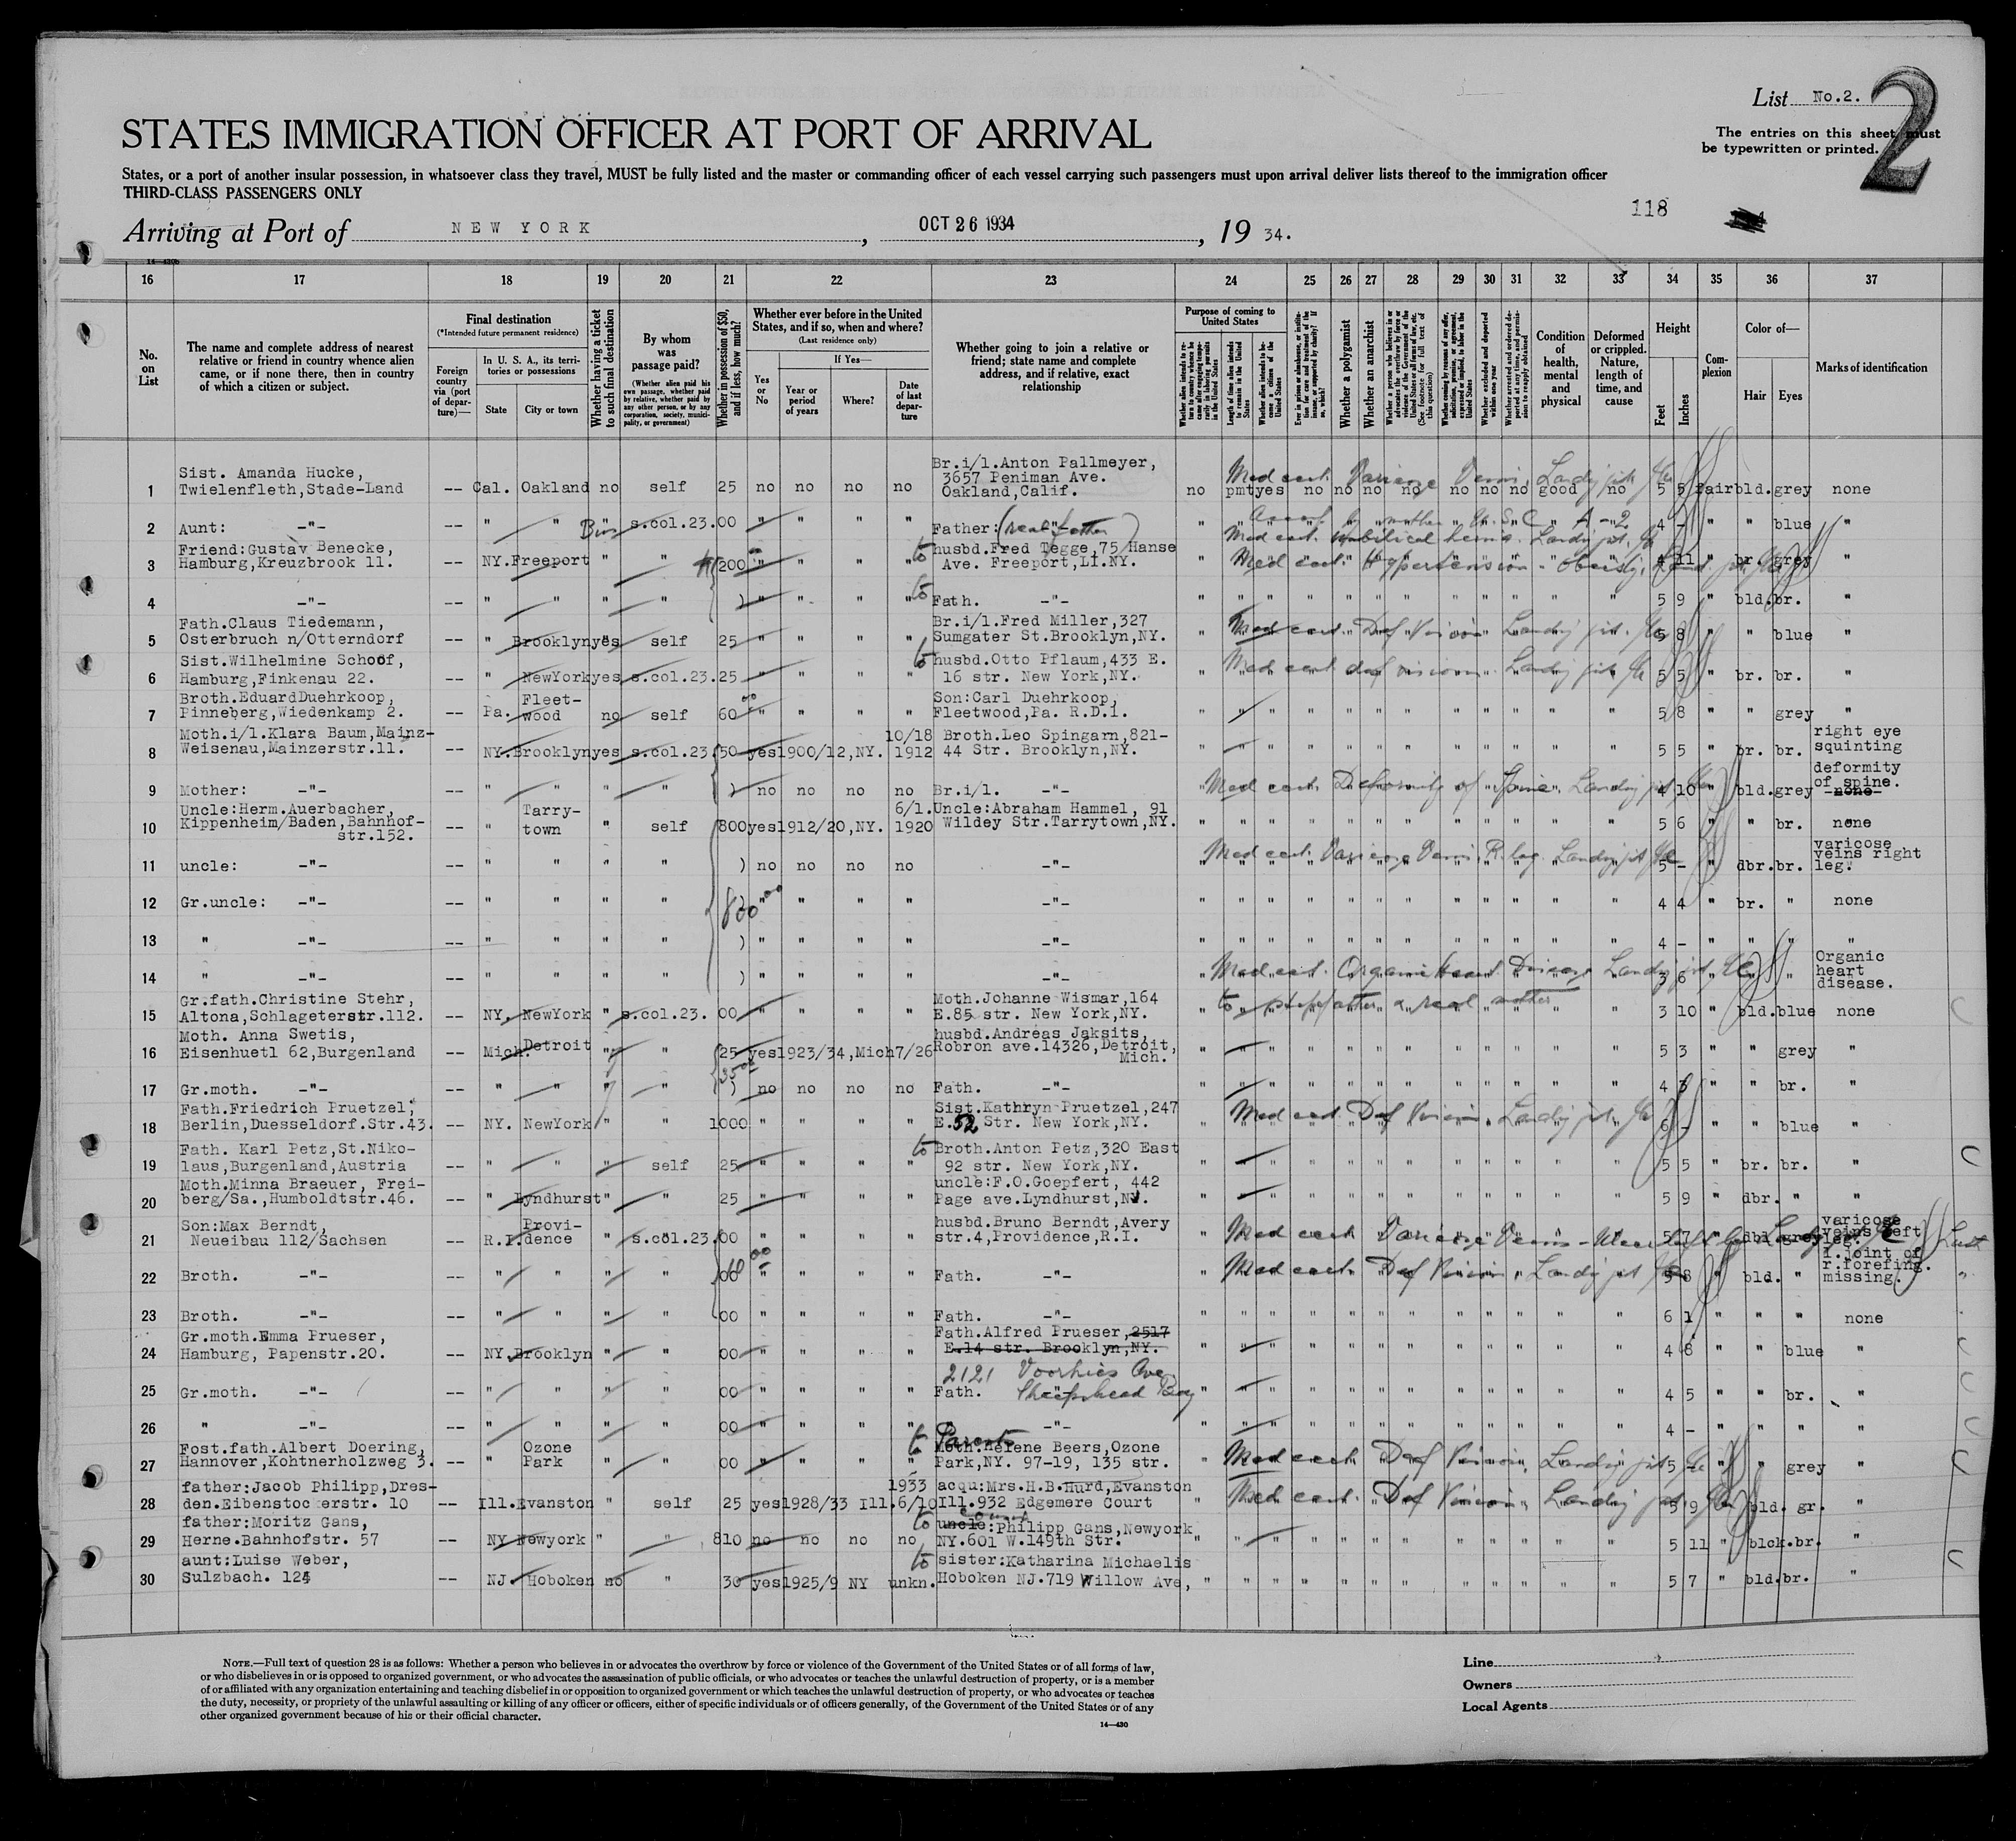 List No.2.
2
STATES IMMIGRATION OFFICER AT PORT OF ARRIVAL
The entries on this sheet must
be typewritten or printed.
States, or a port of another insular possession, in whatsoever class they travel, MUST be fully listed and the master or commanding officer of each vessel carrying such passengers must upon arrival deliver lists thereof to the immigration officer
THIRD-CLASS PASSENGERS ONLY
118
Arriving at Port of NEW YORK, OCT 26 1934, 19 34.
16 17 18 19 20 21 22 23 24 25 26 27 28 29 30 31 32 33 34 35 36 37
No. on List
The name and complete address of nearest relative or friend in country whence alien came, or if none there, then in country of which a citizen or subject.
Final destination
(*Intended future permanent residence)
Foreign country via (port of departure)—
In U. S. A., its territories or possessions
State
City or town
Whether having a ticket to such final destination
By whom was passage paid?
(Whether alien paid his own passage, whether paid by relative, whether paid by any other person, or by any corporation, society, municipality, or government)
Whether in possession of $50, and if less, how much?
Whether ever before in the United States, and if so, when and where?
(Last residence only)
Yes or No
If Yes—
Year or period of years
Where?
Date of last departure
Whether going to join a relative or friend; state name and complete address, and if relative, exact relationship
Purpose of coming to United States
Length of time alien intends to remain in the United States
Whether alien intends to become a citizen of the United States
Whether a polygamist
Whether an anarchist
Whether excluded and deported within one year
Condition of health, mental and physical
Deformed or crippled. Nature, length of time, and cause
Height
Feet
Inches
Complexion
Color of—
Hair
Eyes
Marks of identification
1 Sist. Amanda Hucke,
Twielenfleth,Stade-Land -- Cal. Oakland no self 25 no no no no
Br.i/l.Anton Pallmeyer,
3657 Peniman Ave.
Oakland,Calif.
no pmt yes no no no no no no no good no 5 5 fair bld. grey none
Med cert. Varicose Veins. Landg
2 Aunt: -"- -- " " " s.col.23. 00 " " " " Father: (real father) 4 - " " blue "
3 Friend:Gustav Benecke,
Hamburg,Kreuzbrook 11. -- NY. Freeport " " 200 " " " "
to husbd.Fred Tegge,75 Hanse
Ave. Freeport,LI.NY.
Med cert. umbilical hernia. Landg
Med cert. Hypertension - Obesity.
4 11 " br. grey "
4 -"- -- " " " " ) " " " " to Fath. -"- 5 9 " bld. br. "
5 Fath.Claus Tiedemann,
Osterbruch n/Otterndorf -- " Brooklyn yes self 25 " " " "
Br.i/l.Fred Miller,327
Sumgater St.Brooklyn,NY.
Med cert. Def Vision Landg
5 8 " " blue "
6 Sist.Wilhelmine Schoof,
Hamburg,Finkenau 22. -- " NewYork yes s.col.23. 25 " " " "
to husbd.Otto Pflaum,433 E.
16 str. New York,NY.
Med cert def vision. Landg
5 5 " br. br. "
7 Broth.EduardDuehrkoop,
Pinneberg,Wiedenkamp 2. -- Pa. Fleet-
wood no self 60 " " " "
Son:Carl Duehrkoop,
Fleetwood,Pa. R.D.1.
5 8 " " grey "
8 Moth.i/l.Klara Baum,Mainz-
Weisenau,Mainzerstr.11. -- NY. Brooklyn yes s.col.23 50 yes 1900/12,NY. 10/18
1912
Broth.Leo Spingarn,821-
44 Str. Brooklyn,NY.
5 5 " br. br. right eye
squinting
9 Mother: -"- -- " " " " ) no no no no Br.i/l. -"-
Med cert. Deformity of Spine. Landg
4 10 " bld. grey deformity
of spine.
-none-
10 Uncle:Herm.Auerbacher,
Kippenheim/Baden,Bahnhof-
str.152. -- " Tarry-
town " self 800 yes 1912/20,NY. 6/1.
1920
Uncle:Abraham Hammel, 91
Wildey Str.Tarrytown,NY.
5 6 " " br. none
11 uncle: -"- -- " " " " ) no no no no -"-
Med cert. Varicose Veins. R. leg. Landg
5 - " dbr. br. varicose
veins right
leg.
12 Gr.uncle: -"- -- " " " " 800 " " " " -"- 4 4 " br. " none
13 " -"- -- " " " " ) " " " " -"- 4 - " " " "
14 " -"- -- " " " " ) " " " " -"-
Med cert. Organic Heart Disease Landg
3 6 " " " Organic
heart
disease.
15 Gr.fath.Christine Stehr,
Altona,Schlageterstr.112. -- NY. NewYork " s.col.23. 00 " " " "
Moth.Johanne Wismar,164
E.85 str. New York,NY.
to stepfather & real mother
3 10 " bld. blue none
16 Moth. Anna Swetis,
Eisenhuetl 62,Burgenland -- Mich. Detroit " " 25 yes 1923/34,Mich 7/26
husbd.Andreas Jaksits,
Robron ave.14326,Detroit,
Mich.
5 3 " " grey "
17 Gr.moth. -"- -- " " " " ) no no no no Fath. -"- 4 3 " " br. "
18 Fath.Friedrich Pruetzel,
Berlin,Duesseldorf.Str.43. -- NY. NewYork " " 1000 " " " "
Sist.Kathryn Pruetzel,247
E.52 Str. New York,NY.
Med cert. Def Vision. Landg
6 - " " blue "
19 Fath. Karl Petz,St.Niko-
laus,Burgenland,Austria -- " " " self 25 " " " "
to Broth.Anton Petz,320 East
92 str. New York,NY.
5 5 " br. br. "
20 Moth.Minna Braeuer, Frei-
berg/Sa.,Humboldtstr.46. -- " Lyndhurst " " 25 " " " "
uncle:F.O.Goepfert, 442
Page ave.Lyndhurst,N.
5 9 " dbr. " "
21 Son:Max Berndt,
Neueibau 112/Sachsen -- R.I. Provi-
dence " s.col.23. 00 " " " "
husbd.Bruno Berndt,Avery
str.4,Providence,R.I.
Med cert Varicose Veins
5 7 " dbl. grey varicose
veins left
leg.
22 Broth. -"- -- " " " " 00 " " " " Fath. -"-
Med cert Def Vision. Landg
5 8 " bld. " 1.joint of
r.forefing.
missing.
23 Broth. -"- -- " " " " 00 " " " " Fath. -"- 6 1 " " " none
24 Gr.moth.Emma Prueser,
Hamburg, Papenstr.20. -- NY. Brooklyn " " 00 " " " "
Fath.Alfred Prueser,2517
E.14 str. Brooklyn,NY.
2121 Voorhies Ave
Sheepshead Bay
4 8 " " blue "
25 Gr.moth. -"- -- " " " " 00 " " " " Fath. -"- 4 5 " " br. "
26 " -"- -- " " " " 00 " " " " -"- 4 - " " " "
27 Fost.fath.Albert Doering,
Hannover,Kohtnerholzweg 3. -- " Ozone
Park " " 00 " " " "
to Parents
Moth.Helene Beers,Ozone
Park,NY. 97-19, 135 str.
Med cert. Def Vision, Landg
5 " " grey "
28 father:Jacob Philipp,Dres-
den.Eibenstockerstr. 10 -- Ill. Evanston " self 25 yes 1928/33 Ill. 1933
6/10
acqu:Mrs.H.B.Hurd,Evanston
Ill.932 Edgemere Court
Med cert. Def Vision, Landg
5 9 bld. gr. "
29 father:Moritz Gans,
Herne.Bahnhofstr. 57 -- NY Newyork " " 810 no no no no
to cousin
uncle:Philipp Gans,Newyork
NY.601 W.149th Str.
5 11 " blck. br. "
30 aunt:Luise Weber,
Sulzbach. 124 -- NJ. Hoboken no " 30 yes 1925/9 NY unkn.
to sister:Katharina Michaelis
Hoboken NJ.719 Willow Ave,
5 7 " bld. br. "
NOTE.—Full text of question 28 is as follows: Whether a person who believes in or advocates the overthrow by force or violence of the Government of the United States or of all forms of law,
or who disbelieves in or is opposed to organized government, or who advocates the assassination of public officials, or who advocates or teaches the unlawful destruction of property, or is a member
of or affiliated with any organization entertaining and teaching disbelief in or opposition to organized government or which teaches the unlawful destruction of property, or who advocates or teaches
the duty, necessity, or propriety of the unlawful assaulting or killing of any officer or officers, either of specific individuals or of officers generally, of the Government of the United States or of any
other organized government because of his or their official character.
14—430
Line
Owners
Local Agents